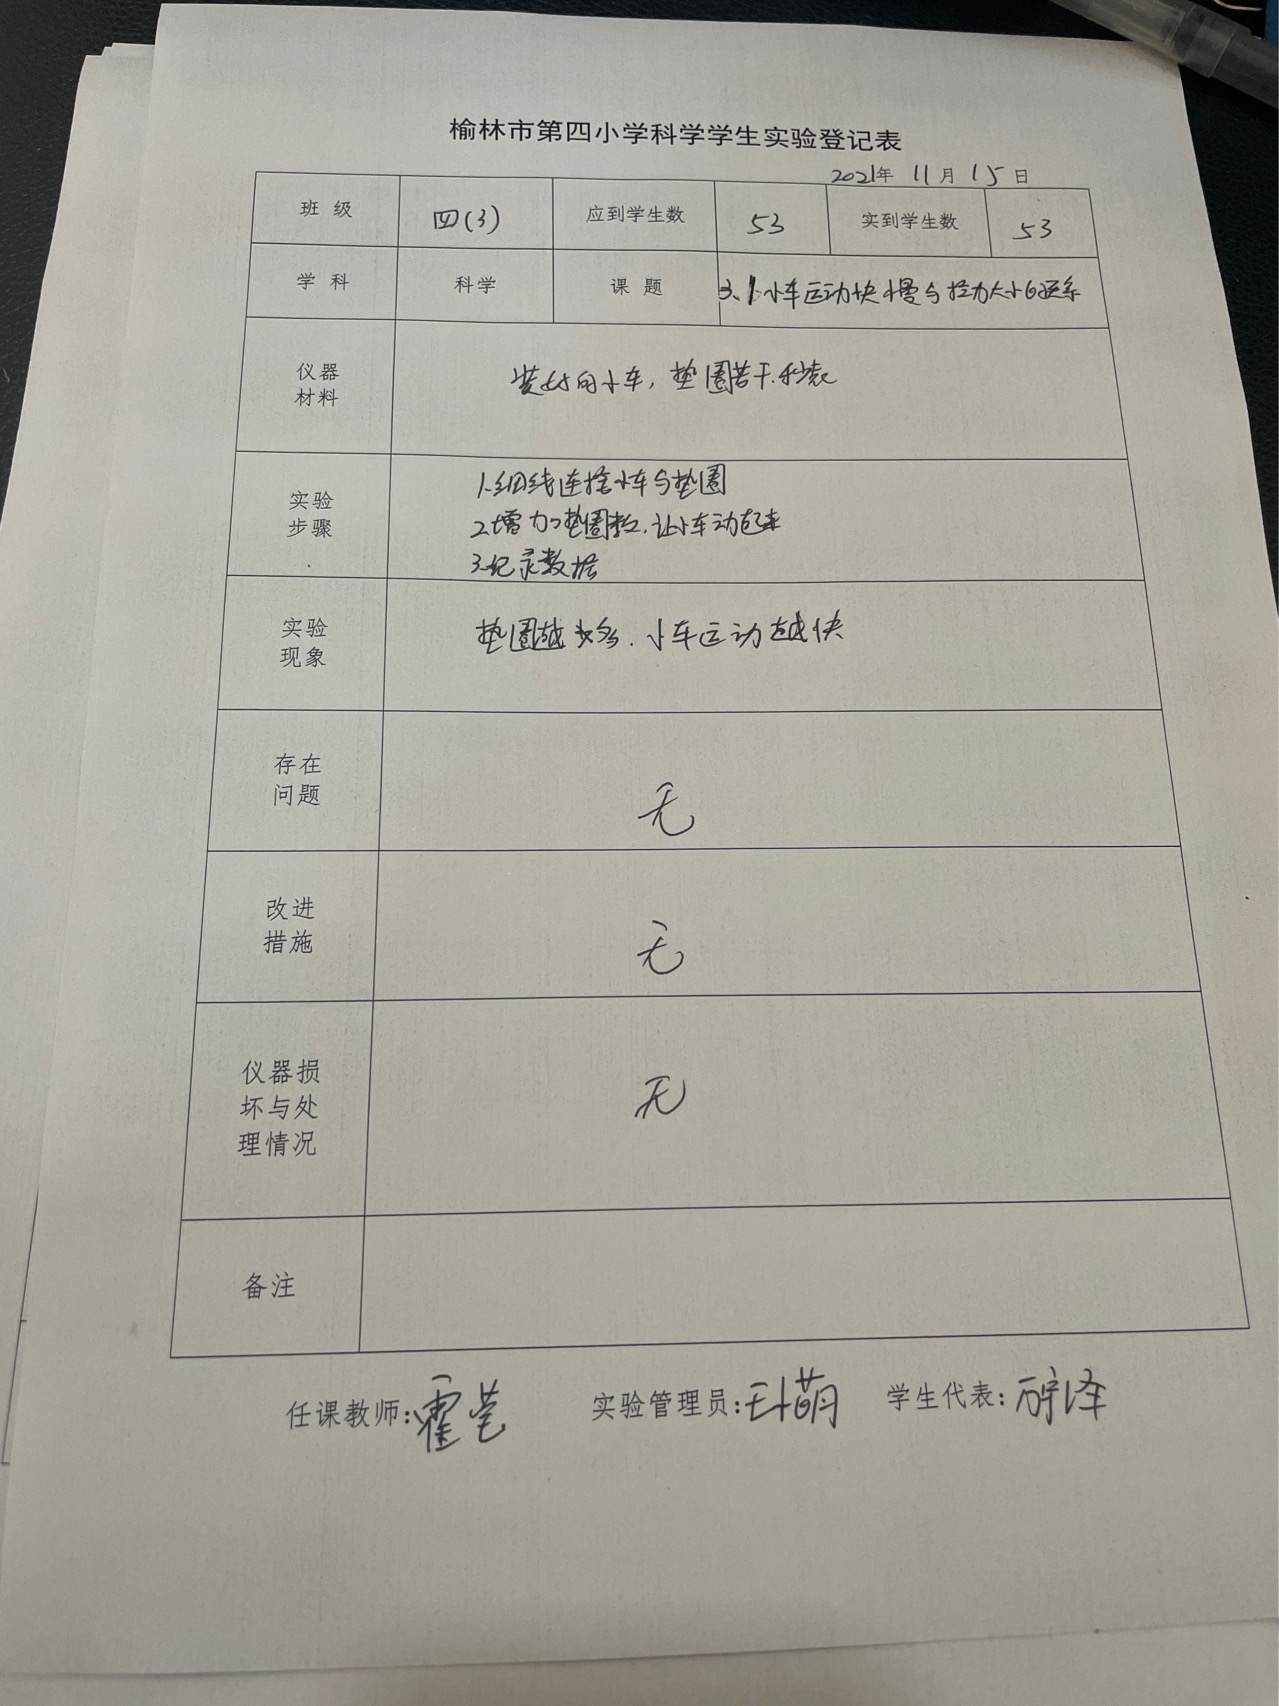 榆林市第四小学科学学生实验登记表
2021年 11月 15日
班级 四(3) 应到学生数 53 实到学生数 53
学科 科学 课题 3.1小车运动快慢与拉力大小的关系
仪器
材料
装好的小车，垫圈若干.秒表
实验
步骤
1.细线连接小车与垫圈
2.增加垫圈数.让小车动起来
3.纪录数据
实验
现象
垫圈越多.小车运动越快
存在
问题
无
改进
措施
无
仪器损
坏与处
理情况
无
备注
任课教师:霍莹 实验管理员: 学生代表: